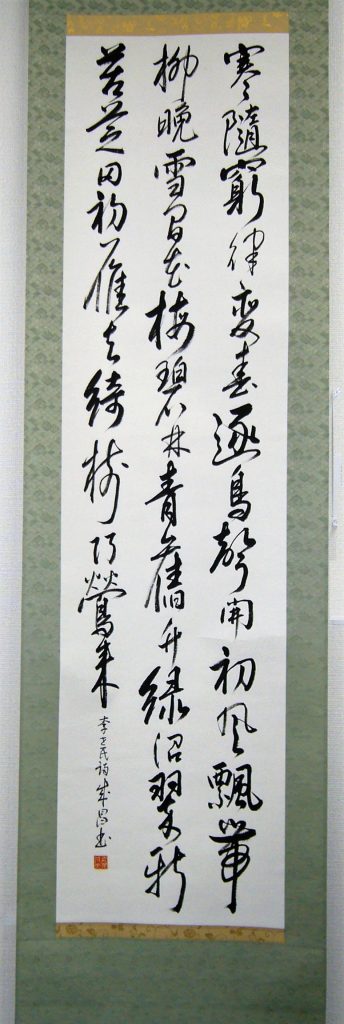 寒隨窮律變春逐鳥聲開初風飄帶
柳晚雪間花梅碧林青舊竹綠沼翠新
苔芝田初雁去綺樹巧鶯來
李世民詩書